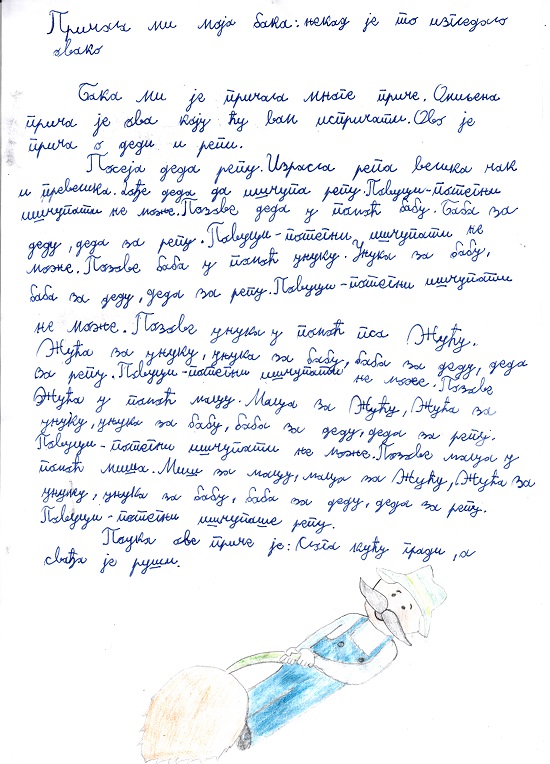 Причала ми моја бака: некад је то изгледало
овако
Бака ми је причала многе приче. Омиљена
прича је ова коју ћу вам испричати. Ово је
прича о деди и репи.
Посеја деда репу. Израсла репа велика чак
и превелика. Дође деда да ишчупа репу. Повуци-потегни
ишчупати не може. Позове деда у помоћ бабу. Баба за
деду, деда за репу. Повуци-потегни ишчупати не
може. Позове баба у помоћ унуку. Унука за бабу,
баба за деду, деда за репу. Повуци-потегни ишчупати
не може. Позове унука у помоћ пса Жућу.
Жућа за унуку, унука за бабу, баба за деду, деда
за репу. Повуци-потегни ишчупати не може. Позове
Жућа у помоћ мацу. Маца за Жућу, Жућа за
унуку, унука за бабу, баба за деду, деда за репу.
Повуци-потегни ишчупати не може. Позове маца у
помоћ миша. Миш за мацу, маца за Жућу, Жућа за
унуку, унука за бабу, баба за деду, деда за репу.
Повуци-потегни ишчупаше репу.
Поука ове приче је: Слога кућу гради, а
свађа је руши.